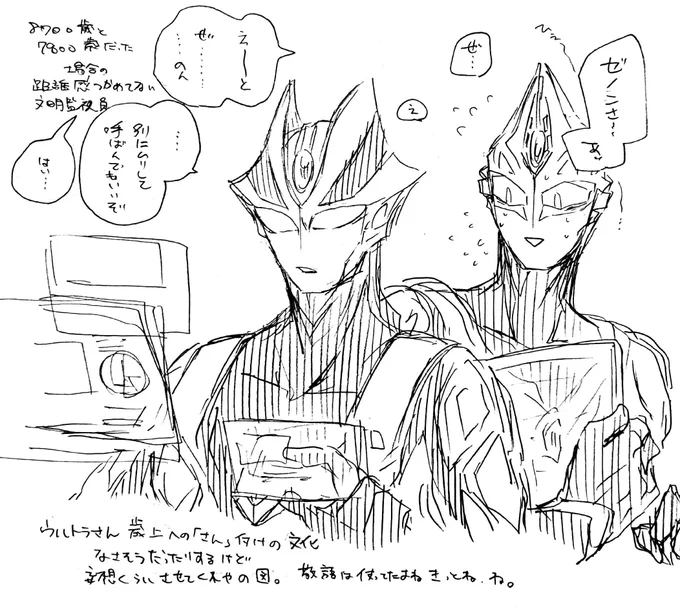 8700歳と
7800歳だった
場合の
距離感つかめてない
文明監視員
ゼノンさ〜
あ、
ぜ…
え
えーと
ぜ……
……のん
……
別にムリして
呼ばんでもいいぞ
はい…
ウルトラさん 歳上への「さん」付けの文化
なさそうだったりするけど
妄想くらいさせてくれやの図。 敬語は使ってたまねきっとね、ね。